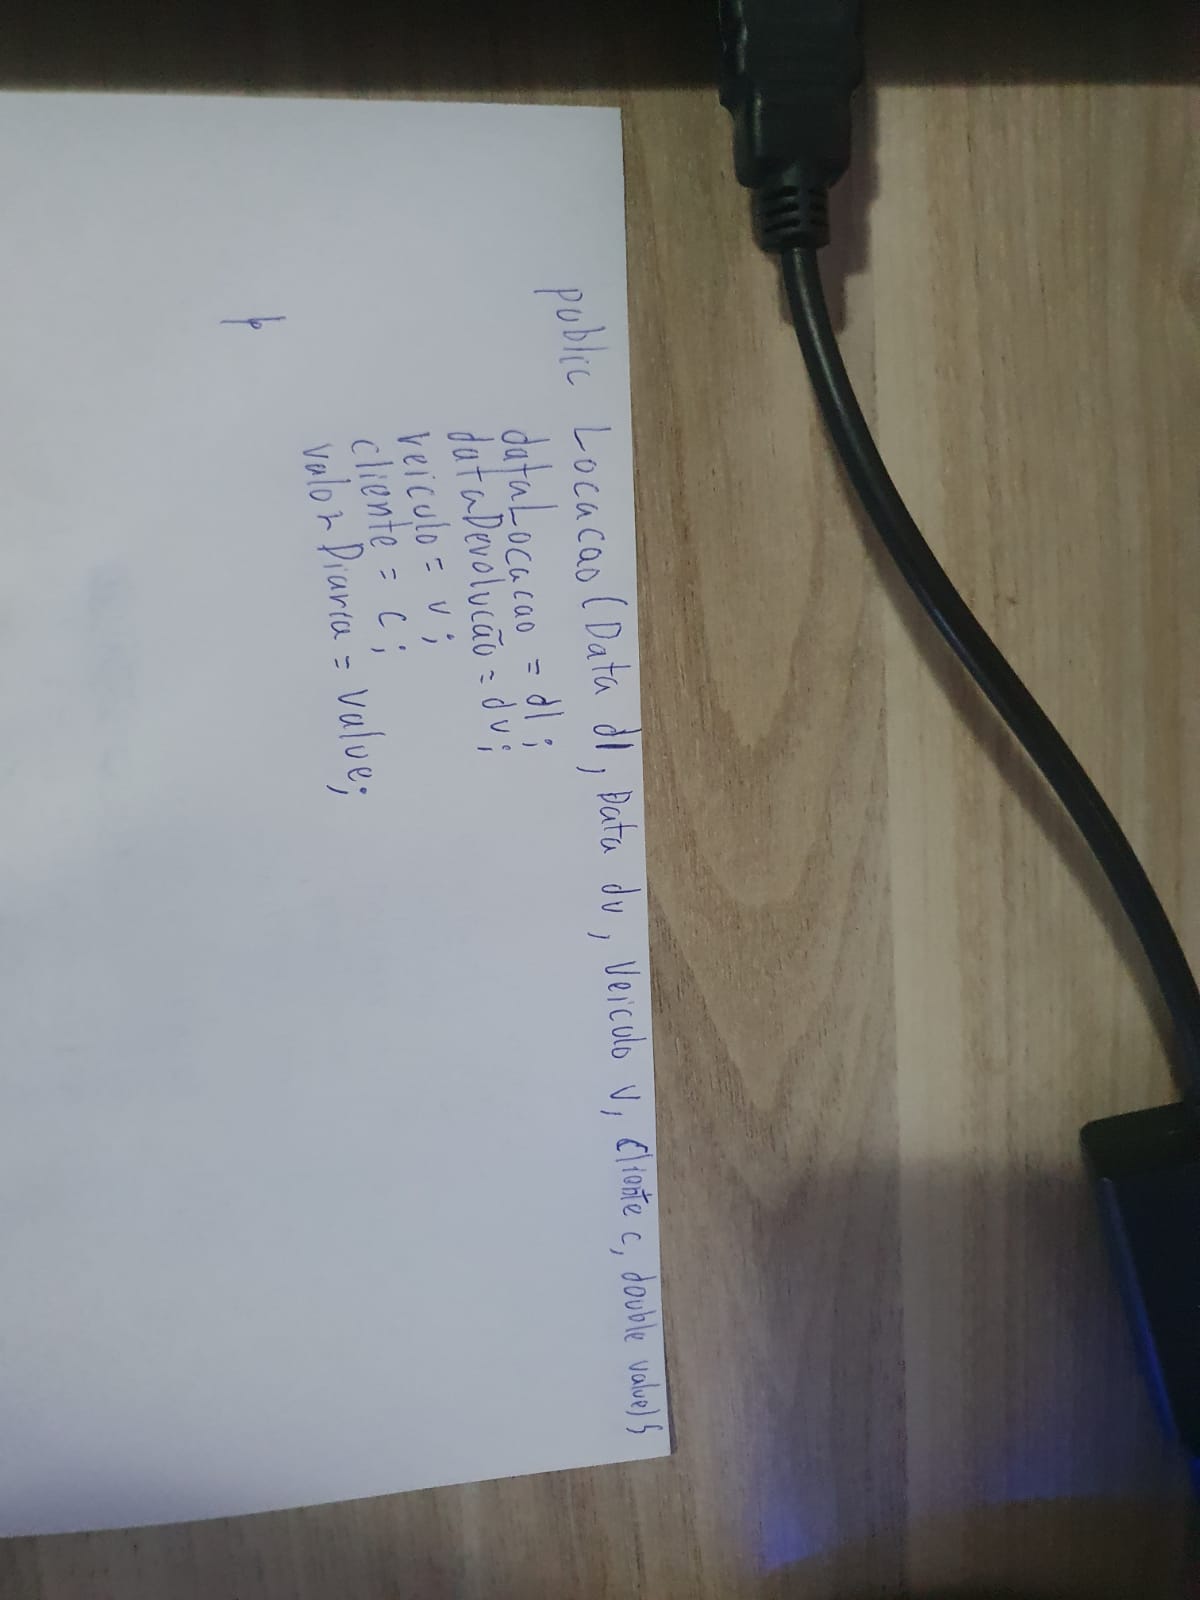 public Locacao (Data dl, Data dv, Veiculo v, Cliente c, double value){
dataLocacao = dl;
dataDevolucão = dv;
veiculo = v;
cliente = c;
valorDiaria = value;
}